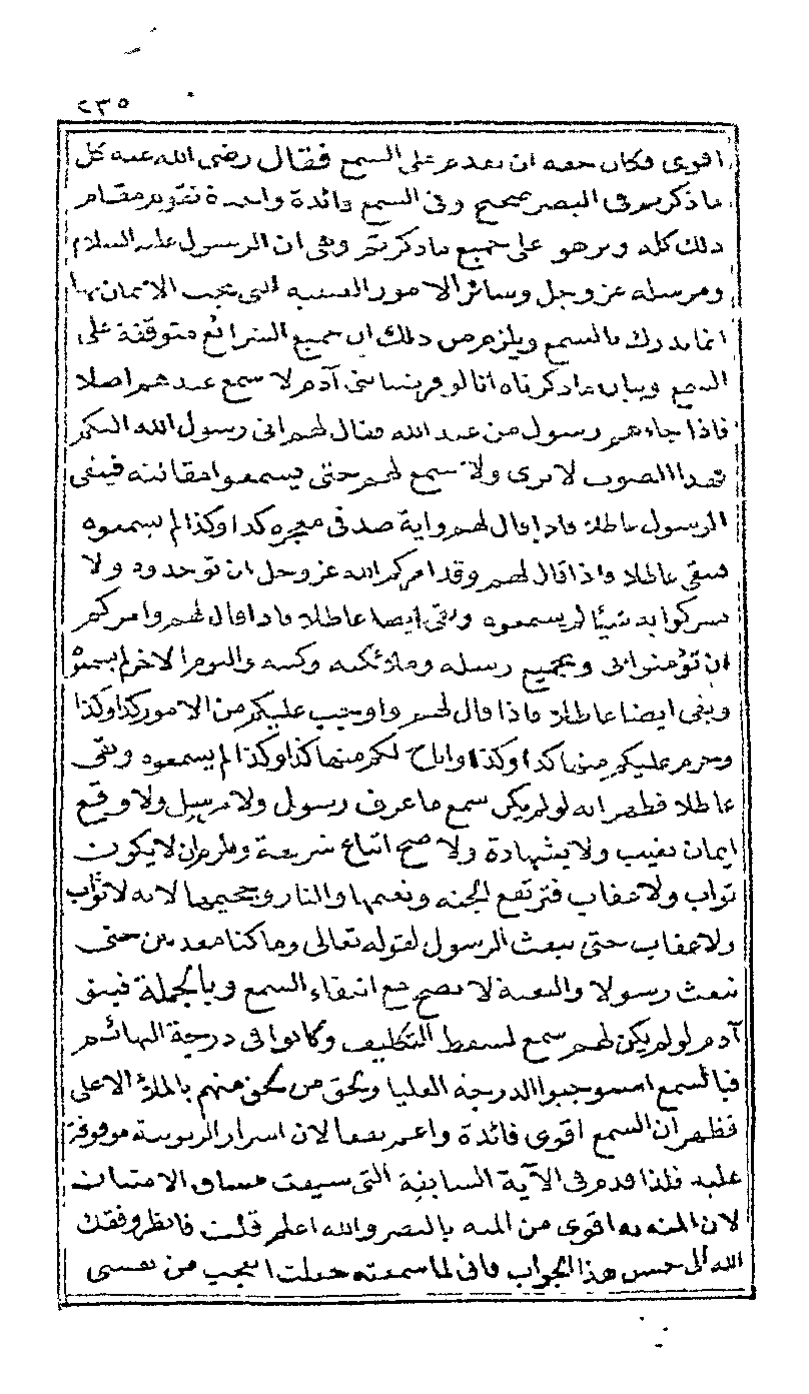 ٢٣٥
اقوى فكان حقه ان يقدم على السمع فقال رضى الله عنه كل
ما ذكرتم فى البصر صحيح وفى السمع فائدة واحدة تقوم مقام
ذلك كله وتزهو على جميع ما ذكرتم وهى ان الرسول عليه السلام
ومرسله عز وجل وسائر الامور الغيبية التى يجب الايمان بها
انما يدرك بالسمع ويلزم من ذلك ان جميع الشرائع متوقفة على
السمع وبيان ما ذكرناه انا لو فرضنا بنى آدم لا سمع عندهم اصلا
فاذا جاءهم رسول من عند الله فقال لهم انى رسول الله اليكم
فهذا الصوت لا يرى ولا سمع لهم حتى يسمعوا مقالته فيبقى
الرسول عاطلا فاذا قال لهم وآية صدقى معجزه كذا وكذا لم يسمعوه
فيبقى عاطلا واذا قال لهم وقد امركم الله عز وجل ان توحدوه ولا
تشركوا به شيئا لم يسمعوه وبقى ايضا عاطلا فاذا قال لهم وامركم
ان تؤمنوا بى وبجميع رسله وملائكته وكتبه واليوم الاخر لم يسمعوه
وبقى ايضا عاطلا فاذا قال لهم واوجب عليكم من الامور كذا وكذا
وحرم عليكم منها كذا وكذا واباح لكم منها كذا وكذا لم يسمعوه وبقى
عاطلا فظهر انه لو لم يكن سمع ما عرف رسول ولا مرسل ولا وقع
ايمان بغيب ولا بشهادة ولا صح اتباع شريعة ولزم ان لا يكون
ثواب ولا عقاب فترتفع الجنه ونعيمها والنار وجحيمها لانه لا ثواب
ولا عقاب حتى يبعث الرسول لقوله تعالى وما كنا معذبين حتى
نبعث رسولا والبعثة لا تصح مع انتفاء السمع وبالجملة فبنو
آدم لو لم يكن لهم سمع لسقط التكليف وكانوا فى درجة البهائم
فبالسمع استوجبوا الدرجة العليا ولحق من لحق منهم بالملإ الاعلى
فظهر ان السمع اقوى فائدة واعم نفعا لان اسرار الربوبية موقوفة
عليه فلذا قدم فى الآية السابقة التى سيقت مساق الامتنان
لان المنه به اقوى من المنه بالبصر والله اعلم قلت فانظر وفقك
الله الى حسن هذا الجواب فانى لما سمعته جعلت اتعجب من نفسى